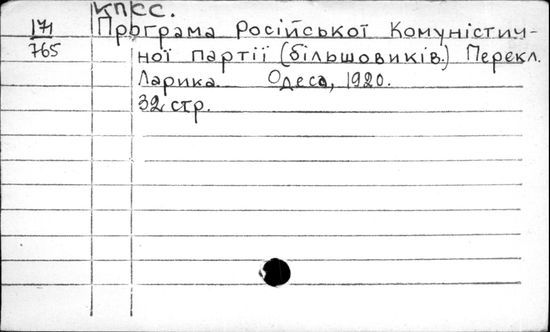 КПСС.
171
765
Програма Російської Комуністич-
ної партії (більшовиків.) Перекл.
Ларика. Одеса, 1920.
32 стр.